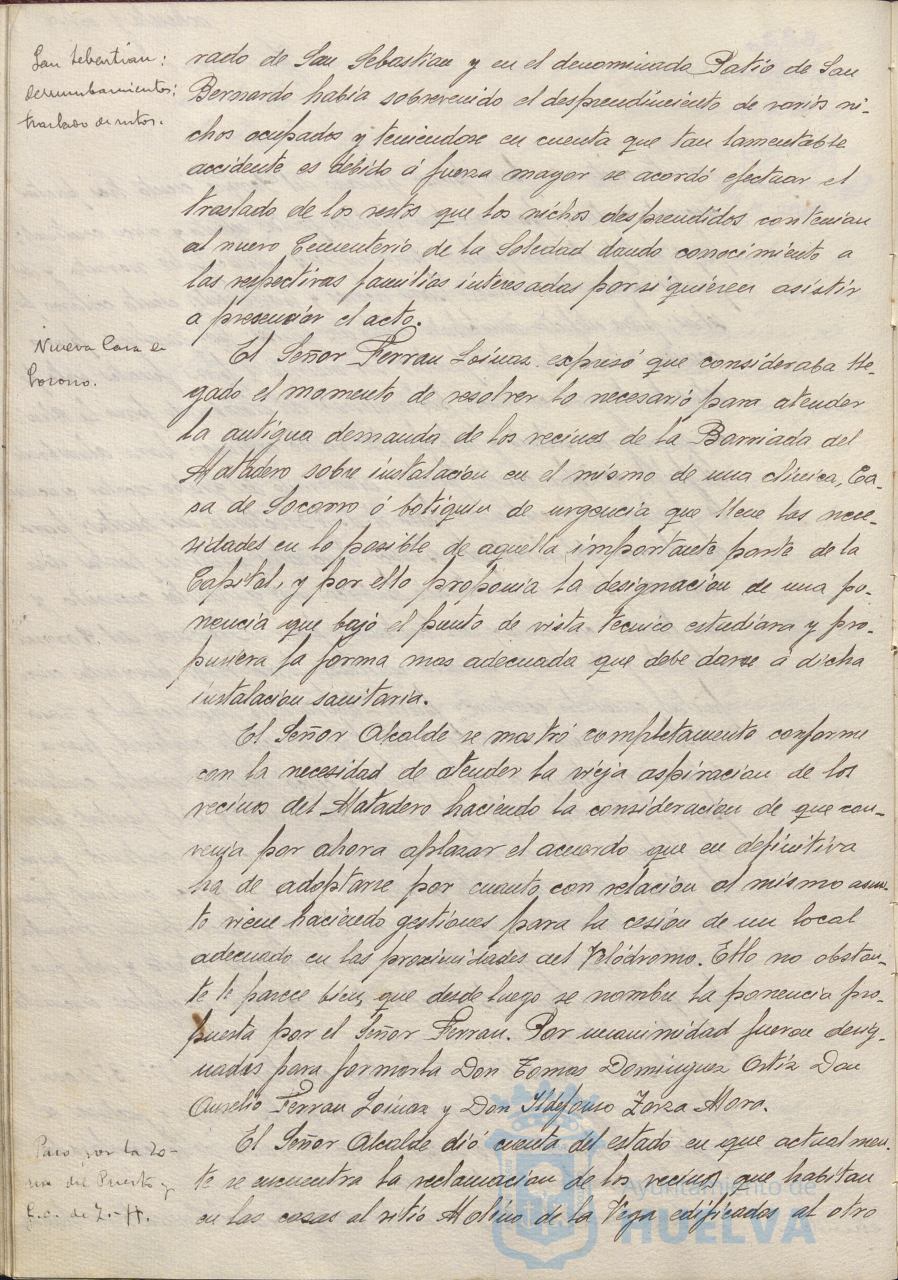 San Sebastián:
derrumbamientos;
traslado de restos.
rado de San Sebastian y en el denominado Patio de San
Bernardo había sobrevenido el desprendimiento de varios ni-
chos ocupados y teniendose en cuenta que tan lamentable
accidente es debido á fuerza mayor se acordó efectuar el
traslado de los restos que los nichos desprendidos contenian
al nuevo Cementerio de la Soledad dando conocimiento a
las respectivas familias interesadas por si quieren asistir
a presenciar el acto.
Nueva Casa de
Socorro.
El Señor Ferrau Loinaz expresó que consideraba lle-
gado el momento de resolver lo necesario para atender
la antigua demanda de los vecinos de la Barriada del
Matadero sobre instalacion en el mismo de una clinica, Ca-
sa de Socorro ó botiquin de urgencia que llene las nece-
sidades en lo posible de aquella importante parte de la
Capital, y por ello proponia la designacion de una po-
nencia que bajo el punto de vista tecnico estudiara y pro-
pusiera la forma mas adecuada que debe darse á dicha
instalacion sanitaria.
El Señor Alcalde se mostró completamente conforme
con la necesidad de atender la vieja aspiracion de los
vecinos del Matadero haciendo la consideracion de que con-
venia por ahora aplazar el acuerdo que en definitiva
ha de adoptarse por cuanto con relacion al mismo asun-
to viene haciendo gestiones para la cesión de un local
adecuado en las proximidades del Velódromo. Ello no obstan-
te le parece bien, que desde luego se nombre la ponencia pro-
puesta por el Señor Ferrau. Por unanimidad fueron desig-
nados para formarla Don Tomas Dominguez Ortiz Don
Aurelio Ferrau Loinaz y Don Ildefonso Zorza Moro.
Paso por la Zo-
na del Puerto y
F.c. de Z. a H.
El Señor Alcalde dió cuenta del estado en que actualmen-
te se encuentra la reclamacion de los vecinos que habitan
en las casas al sitio Molino de la Vega edificados al otro
Ayuntamiento de
HUELVA